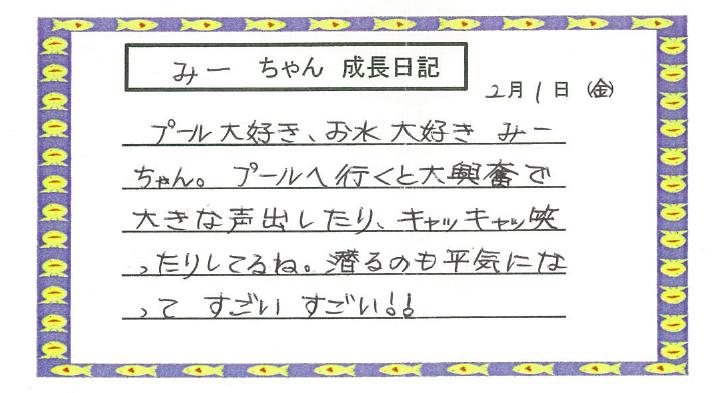 みー ちゃん 成長日記
2月1日(金)
プール大好き、お水大好き みー
ちゃん。プールへ行くと大興奮で
大きな声出したり、キャッキャッ笑
ったりしてるね。潜るのも平気にな
って すごい すごい!!